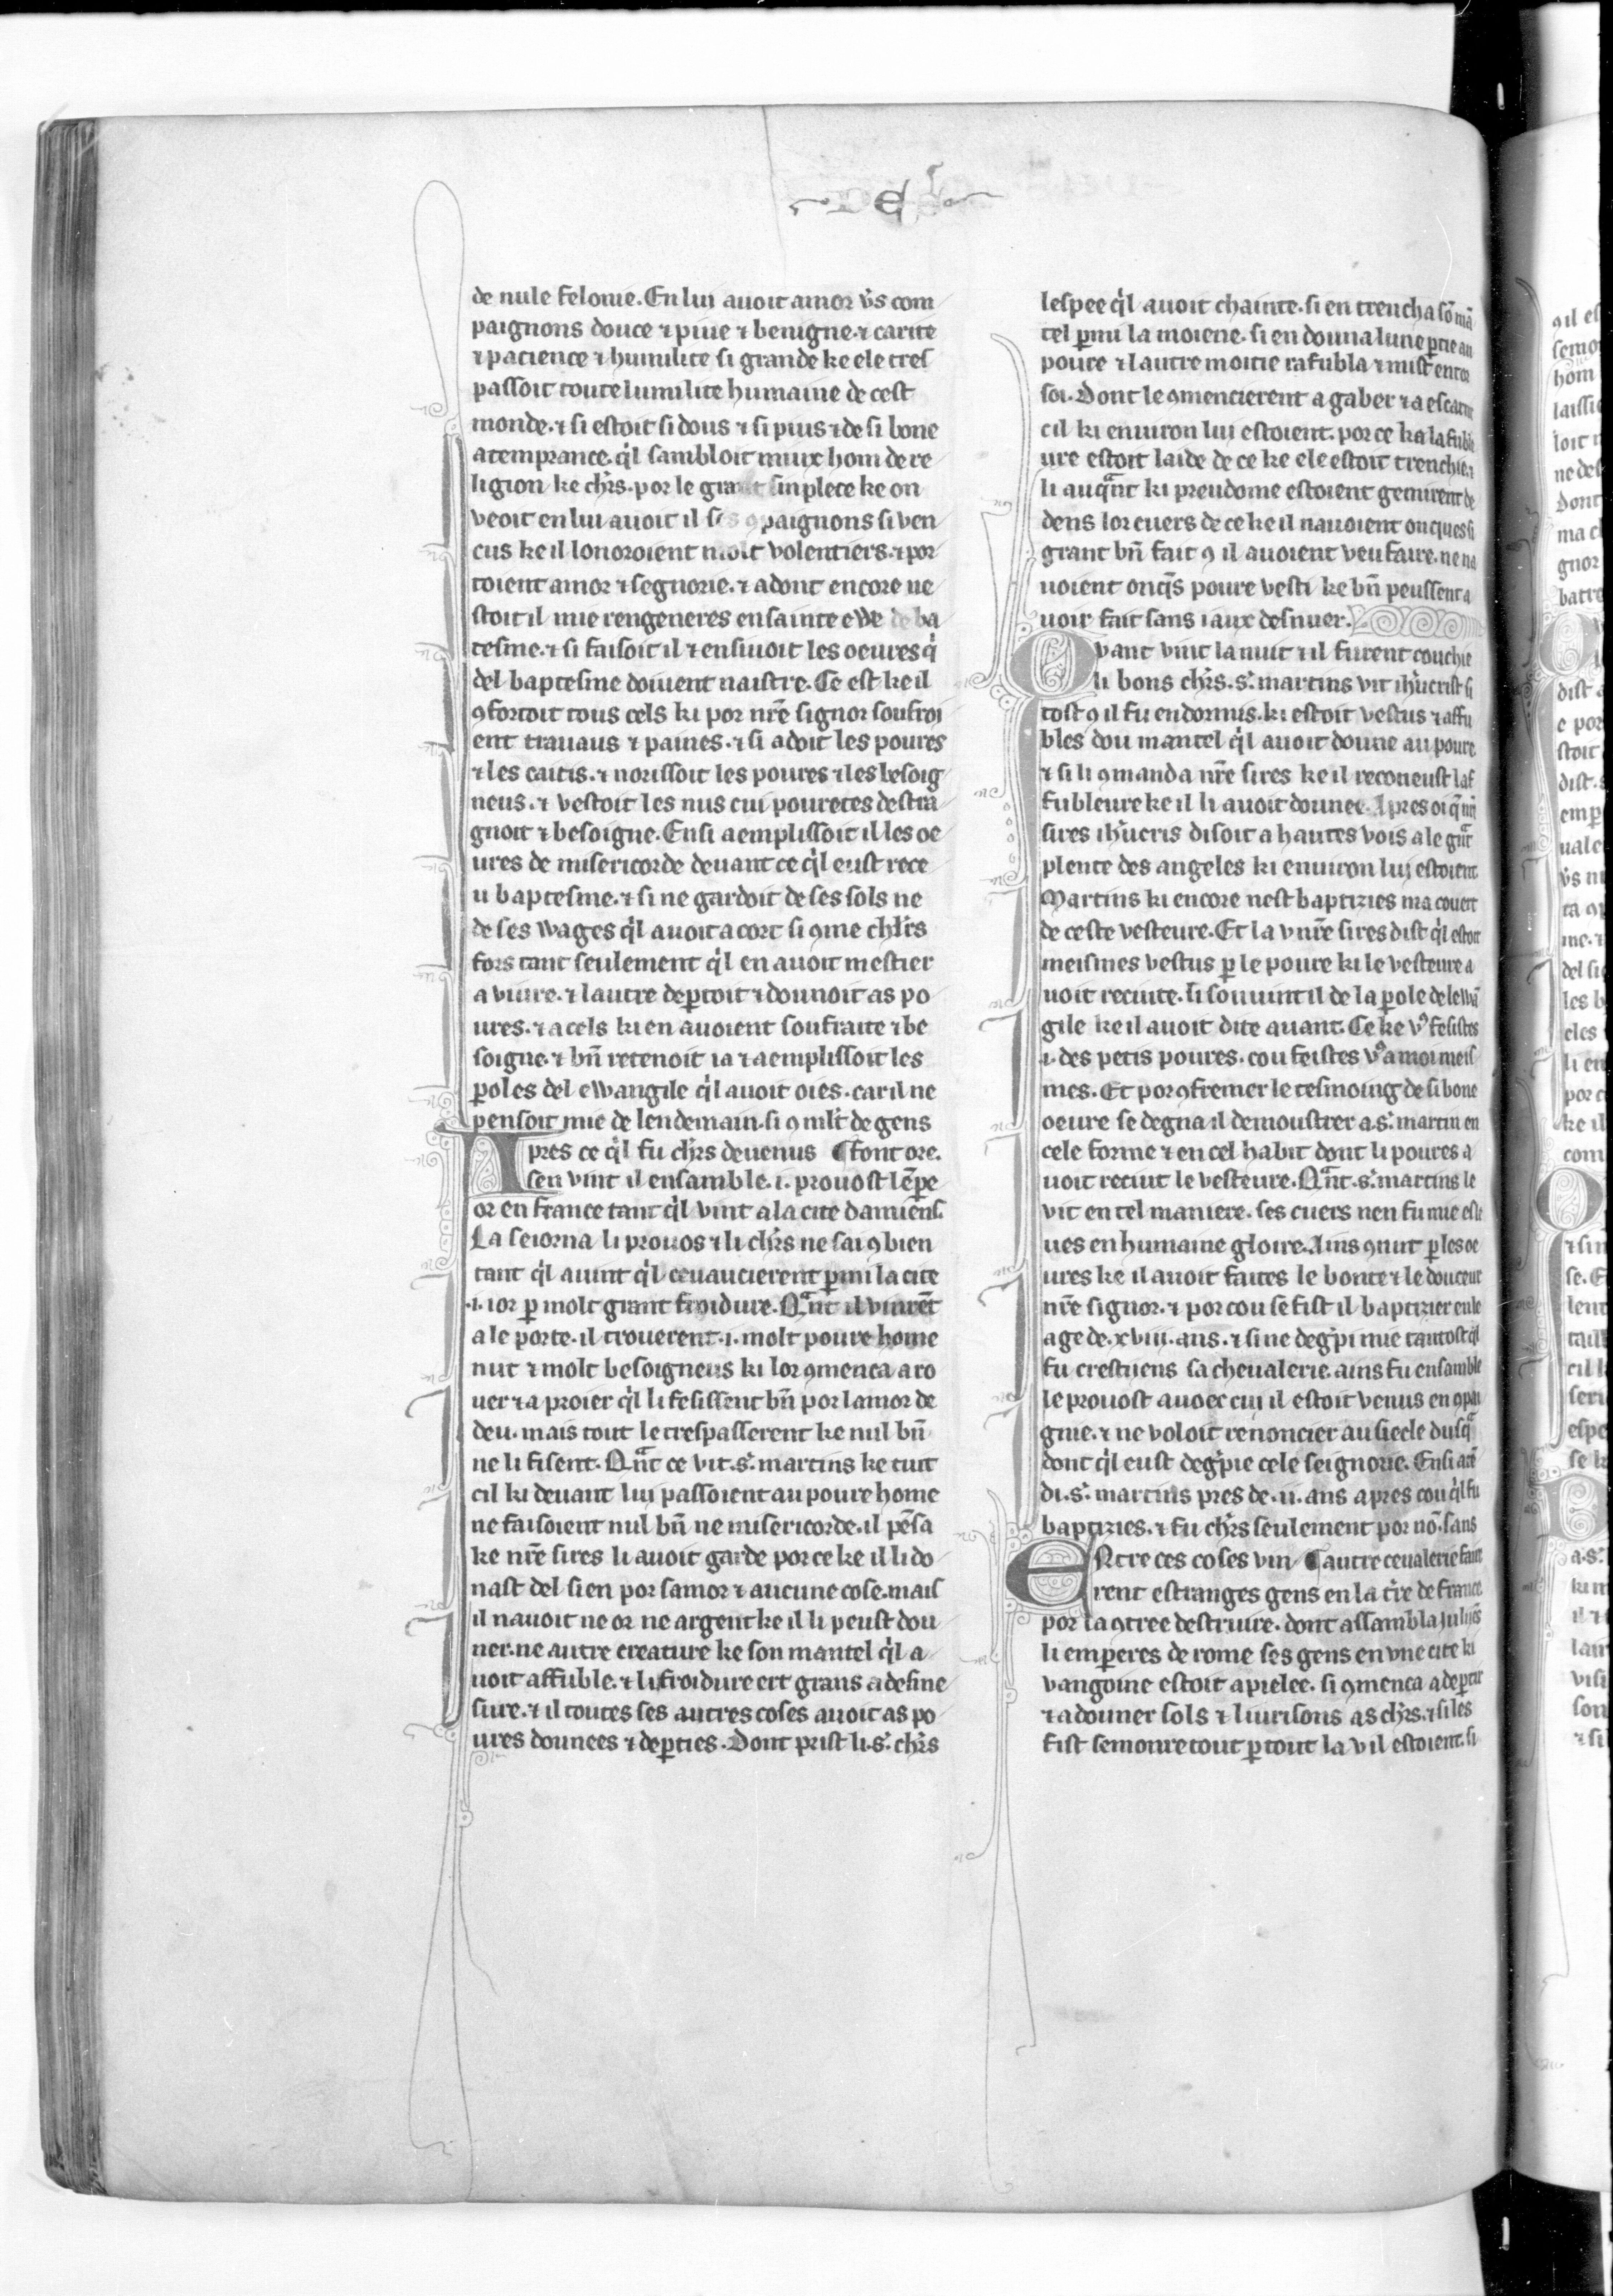 de nule felonie. En lui auoit amor v̾s com
paignons douce ⁊ piue ⁊ benigne. ⁊ carite
⁊ pacience ⁊ humilite si grande ke ele tres
passoit toute lumilite humaine de cest
monde. ⁊ si estoit si dous ⁊ si pius ⁊ de si bone
atemprance. q̇l sambloit miux hom de re
ligion ke chr̄s. por le grant sinplece ke on
veoit en lui auoit il ses ꝯpaignons si ven
cus ke il lonoroient molt volentiers. ⁊ por
toient amor ⁊ segnorie. ⁊ adont encore ne
stoit il mie rengeneres en sainte ewe de ba
tesme. ⁊ si faisoit il ⁊ ensiuoit les oeures q̇
del baptesme doiuent naistre. Ce est ke il
ꝯfortoit tous cels ki por nr̄e signor soufroi
ent trauaus ⁊ paines. ⁊ si adoit les poures
⁊ les caitis. ⁊ norissoit les poures ⁊ les besoig
neus. ⁊ vestoit les nus cui pouretes destra
gnoit ⁊ besoigne. Ensi aemplissoit il les oe
ures de misericorde deuant ce q̇l eust rece
u baptesme. ⁊ si ne gardoit de ses sols ne
de ses wages q̇l auoit a cort si ꝯme chl̄rs
fors tant seulement q̇l en auoit mestier
a viure. ⁊ lautre dep̱toit ⁊ donnoit as po
ures. ⁊ a cels ki en auoient soufraite ⁊ be
soigne. ⁊ bn̄ retenoit ia ⁊ aemplissoit les
ꝑoles del ewangile q̇l auoit oies. car il ne
pensoit mie de lendemain. si ꝯ ml̄t de gens
Apres ce q̇l fu chr̄s deuenus ¶ font ore.
sen vint il ensamble .i. prouost lēpe
or en france tant q̇l vint a la cite damiens.
La seiorna li prouos ⁊ li chr̄s ne sai ꝯbien
tant q̇l auint q̇l ceuaucierent ꝑmi la cite
.i. ior ꝑ molt grant froidure. Qᵃnt il vinrēt
a le porte. il trouerent .i. molt poure home
nut ⁊ molt besoigneus ki lor ꝯmenca a ro
uer ⁊ a proier q̇l li fesissent bn̄ por lamor de
deu. mais tout le trespasserent ke nul bn̄
ne li fisent. Qᵃnt ce vit .s̾. martins ke tuit
cil ki deuant lui passoient au poure home
ne faisoient nul bn̄ ne misericorde. il pēsa
ke nr̄e sires li auoit garde por ce ke il li do
nast del sien por samor ⁊ aucune cose. mais
il nauoit ne or ne argent ke il li peust don
ner. ne autre creature ke son mantel q̇l a
uoit affuble. ⁊ li froidure ert grans a desme
sure. ⁊ il toutes ses autres coses auoit as po
ures donnees ⁊ deꝑties. Dont prist li .s̾. chr̄s
lespee q̇l auoit chainte. si en trencha sō mā
tel ꝑmi la moiene. si en donna lune ꝑtie au
poure ⁊ lautre moitie rafubla ⁊ mist entor
soi. Dont le ꝯmencierent a gaber ⁊ a escarnir
cil ki enuiron lui estoient. por ce ka lafuble
ure estoit laide de ce ke ele estoit trenchie.
li auqᵃnt ki preudome estoient gemirent de
dens lor cuers de ce ke il nauoient onques si
grant bn̄ fait ꝯ il auoient veu faire. ne na
uoient onq̄s poure vesti ke bn̄ peussent a
uoir fait sans iaux desnuer.
Qvant vint la nuit ⁊ il furent couchie
li bons chr̄s .s̾. martins vit ih̄ucrist si
tost ꝯ il fu endormis. ki estoit vestus ⁊ affu
bles dou mantel q̇l auoit donne au poure.
⁊ si li ꝯmanda nr̄e sires ke il reconeust laf
fubleure ke il li auoit donnee. Apres oi q̄ nr̄e
sires ih̄ucris disoit a hautes vois a le gᵃnt
plente des angeles ki enuiron lui estoient
Martins ki encore nest baptizies ma couert
de ceste vesteure. Et la v nr̄e sires dist q̇l estoit
meismes vestus ꝑ le poure ki le vesteure a
uoit reciute. li souuint il de la ꝑole de lewā
gile ke il auoit dite auant. Ce ke vꝰ fesistes
.i. des petis poures. cou feistes vꝰ a moi meis
mes. Et por ꝯfremer le tesmoing de si bone
oeure se degna il demoustrer a .s̾. martin en
cele forme ⁊ en cel habit dont li poures a
uoit reciut le vesteure. Qᵃnt .s̾. martins le
vit en tel maniere. ses cuers nen fu mie esle
ues en humaine gloire. Ains ꝯnut ꝑ les oe
ures ke il auoit faites le bonte ⁊ le douceur
nr̄e signor. ⁊ por cou se fist il baptizier en le
age de .xviii. ans. ⁊ si ne deg̾pi mie tantost q̇l
fu crestiiens sa cheualerie. ains fu ensamble
le prouost auoec cui il estoit venus en ꝯpai
gnie. ⁊ ne voloit renoncier au siecle dusqᵃ
dont q̇l eust deg̾pie cele seignorie. Ensi atē
di .s̾. martins pres de .ii. ans apres cou q̇l fu
baptizies. ⁊ fu chr̄s seulement por nō. sans
Entre ces coses vin ¶ autre ceualerie faire
rent estranges gens en la tr̄e de france
por la ꝯtree destruire. dont assambla iuliiēs
li emꝑeres de rome ses gens en vne cite ki
vangoine estoit apielee. si ꝯmenca a deꝑtir
⁊ a donner sols ⁊ liurisons as chr̄s. ⁊ si les
fist semonre tout ꝑ tout la v il estoient. si